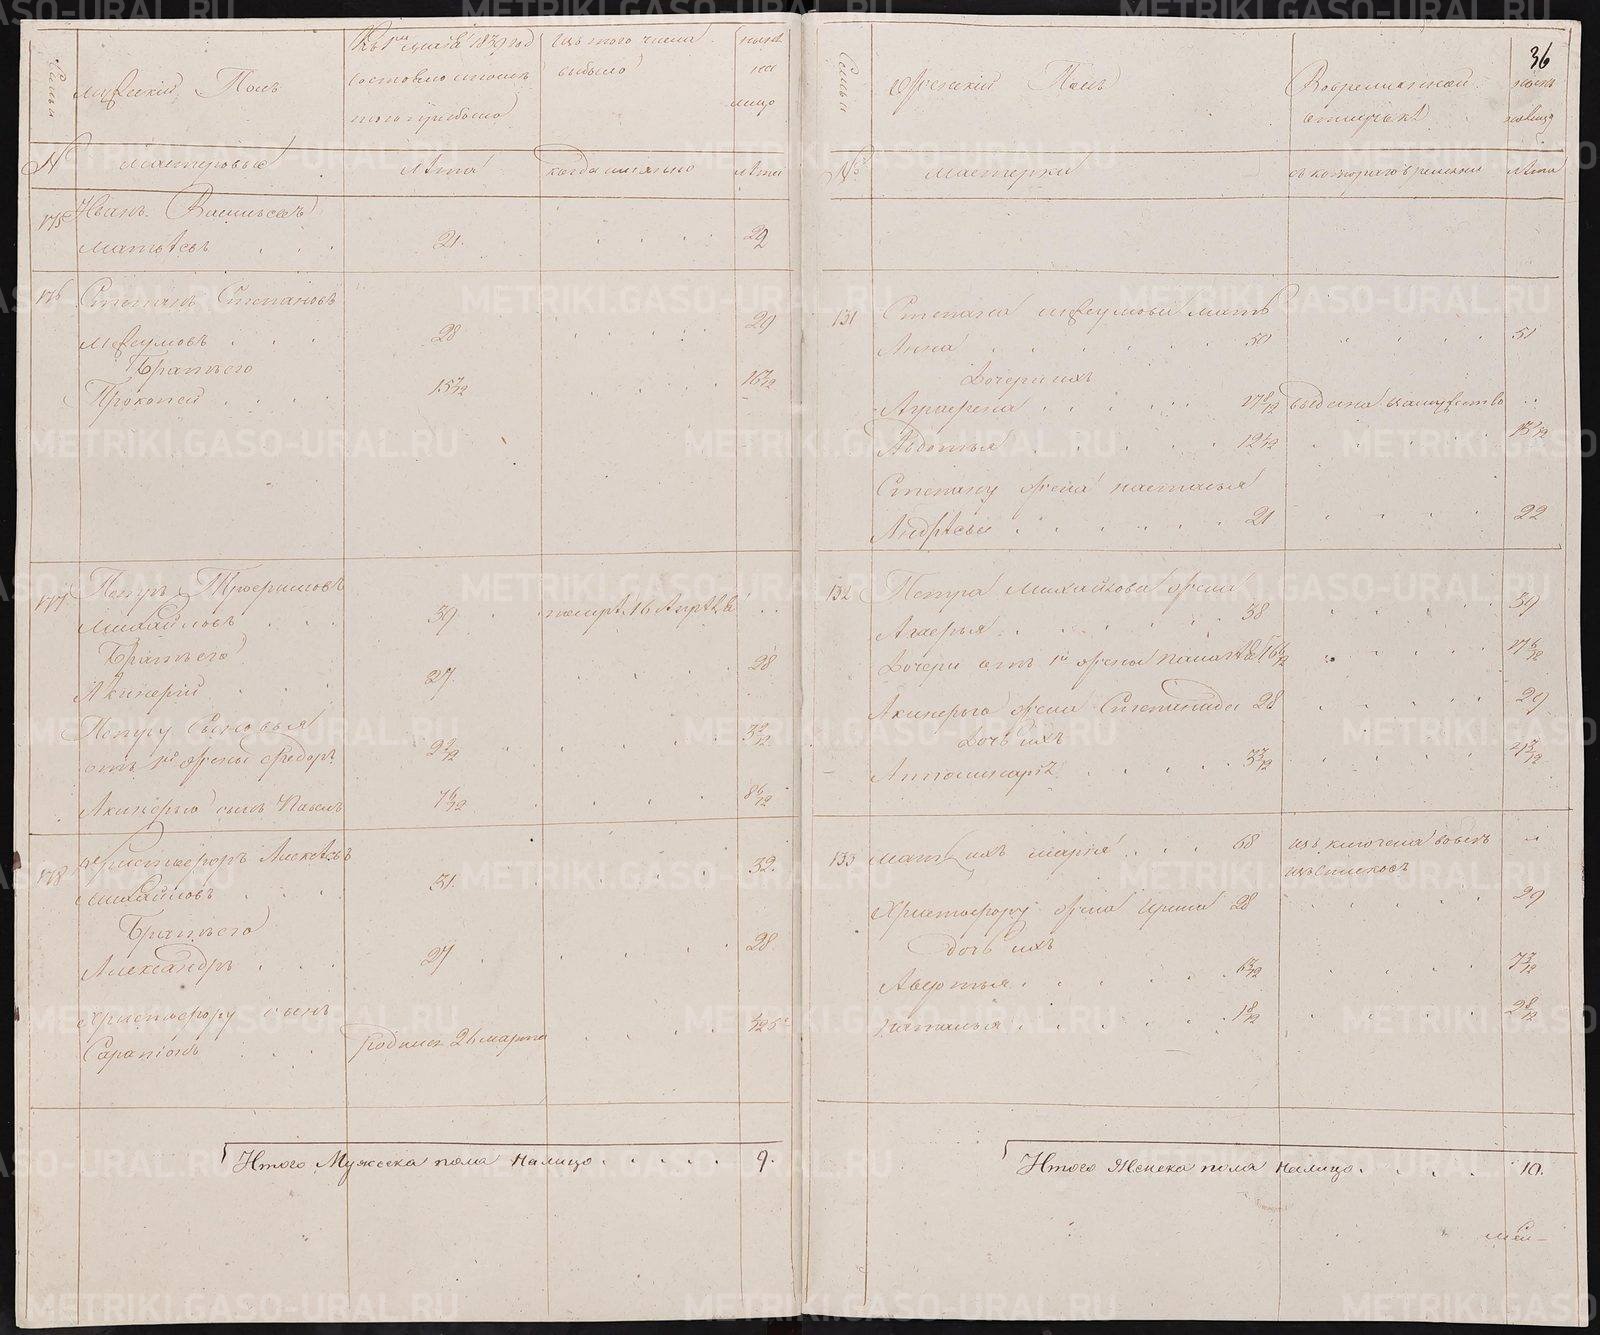 Семьи
Мужескій Полъ
Къ 1му мая 1839 год
состояло и послѣ
того прибыло
Изъ того числа
выбыло
ныне
на
лицо
№ Мастеровые
Лѣта
когда именно
лѣта
175 Иванъ Васильевъ
Матвѣевъ . . . 21. . . . . 22
176 Степанъ Степановъ
Мѣеумовъ . . . 28 . . . . 29
Братъ его
Прокопей . . . . 15 7/12 . . . . 16 7/12
177 Петръ Трофимовъ
Михайловъ . . . 39 . помре 16 Апрѣля . .
Братъ его
Акинфій . . . 27. . . . . 28
Петру Сыновья
отъ 1й жены Федоръ 2 9/12 . . . . 3 9/12
Акинфью сынъ Павелъ 7 6/12 . . . . 8 6/12
178 Христофоръ Алексѣевъ
Михайловъ . . . 31. . . . . 32.
Братъ его
Александръ . . . 27 . . . . 28
Христофору сынъ
Сарапіонъ . . . родился 26 марта . . .
Итого Мужеска пола налицо . . . . . 9.
36
Семьи
Женскій Полъ
Во временной
отлучкѣ
налицо
№ Мастерки
съ котораго времени
лѣта
131 Степана мать
Анна . . . . . . 50 . . . . 51
Дочери ихъ
Аграфена . . . . . 17 8/12 выдана взамужество . .
Авдотья . . . . . 12 . . . .
Степану жена Наталья
Андрѣева . . . . . . 21 . . . . 22
132 Петра Михайлова жена
Агафья . . . . . . 38 . . . . 39
Дочери отъ 1й жены 16 6/12 . . . . 17 6/12
Акинфья жена Степанида 28 . . . . 29
Дочь ихъ
. . . . . 3 7/12 . . . . 4 7/12
133 Мать ихъ Марія . . . 68 изключена вовсѣ
изъ списковъ
Христофору жена Ирина 28 . . . . 29
дочь ихъ
Авдотья . . . . . 6 7/12 . . . . 7 7/12
Наталья . . . . . . 1 8/12 . . . . 2 8/12
Итого Женска пола налицо. . . . . 10.
METRIKI.GASO-URAL.RU